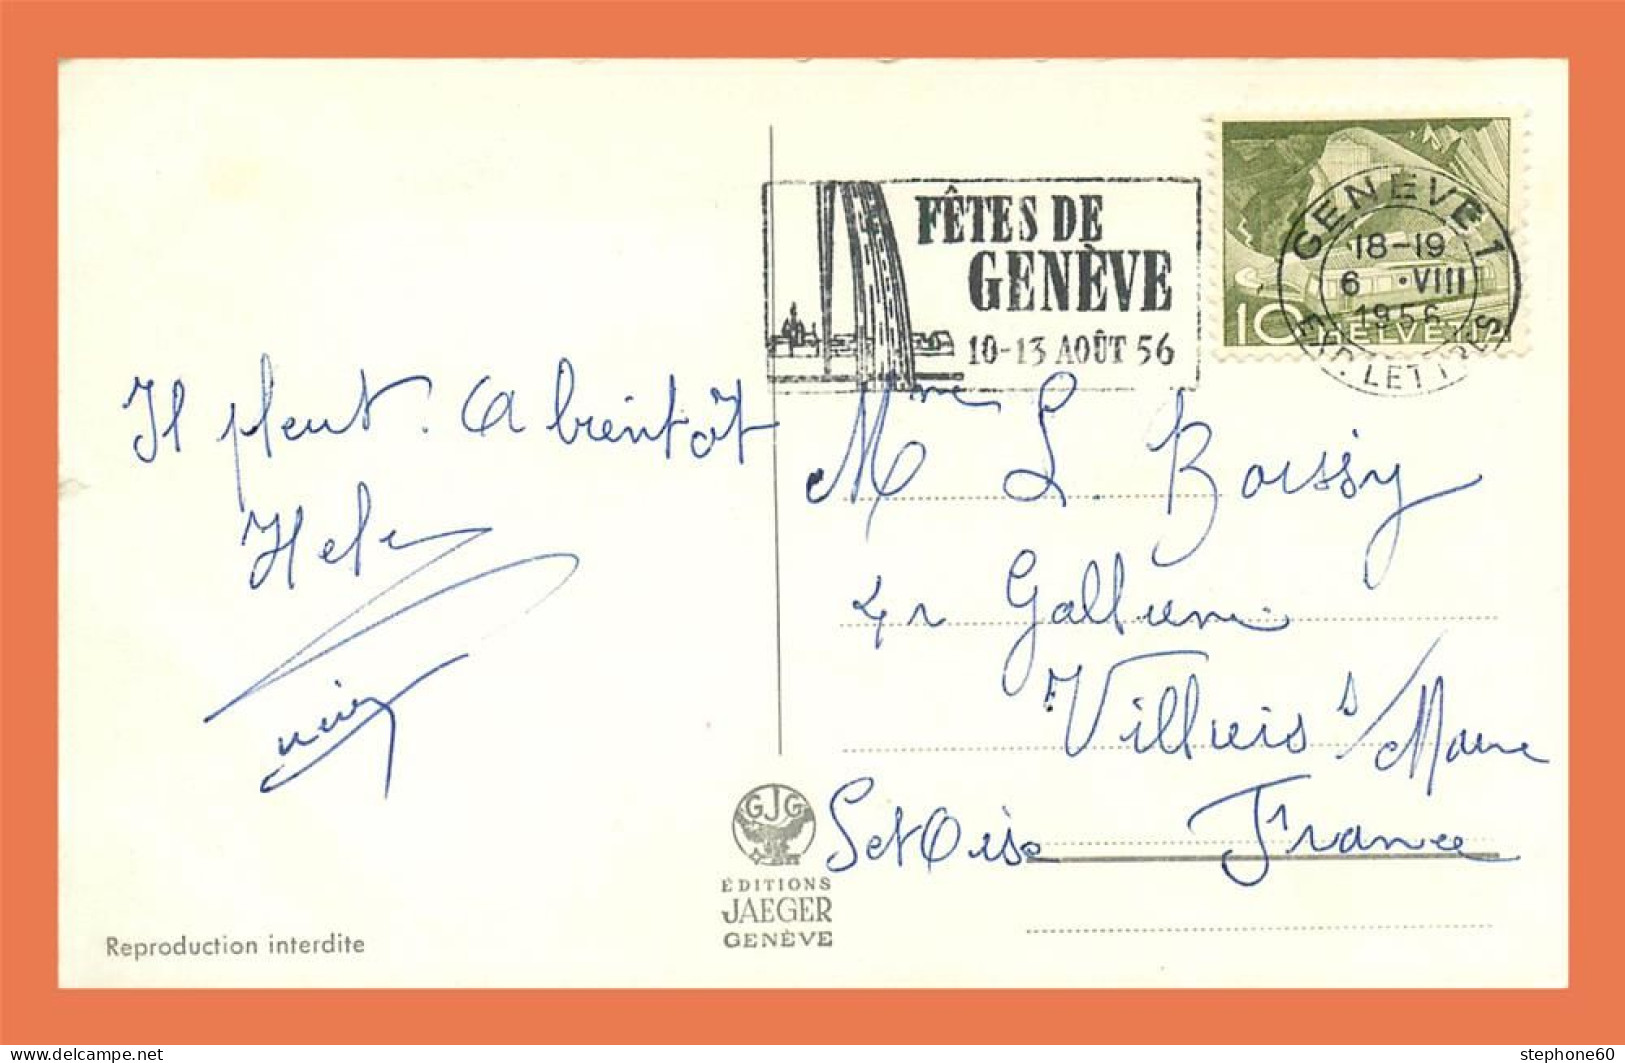 FÊTES DE
GENÈVE
10-13 AOÛT 56
GENEVE 1
18-19
6 •VIII
1956
EXP. LETTRES
10 HELVETIA
Il pleut. A bientôt
Mme L. Boissy
Villiers s/Marne
Set Oise France
GJG
ÉDITIONS
JAEGER
GENÈVE
Reproduction interdite
stephone60